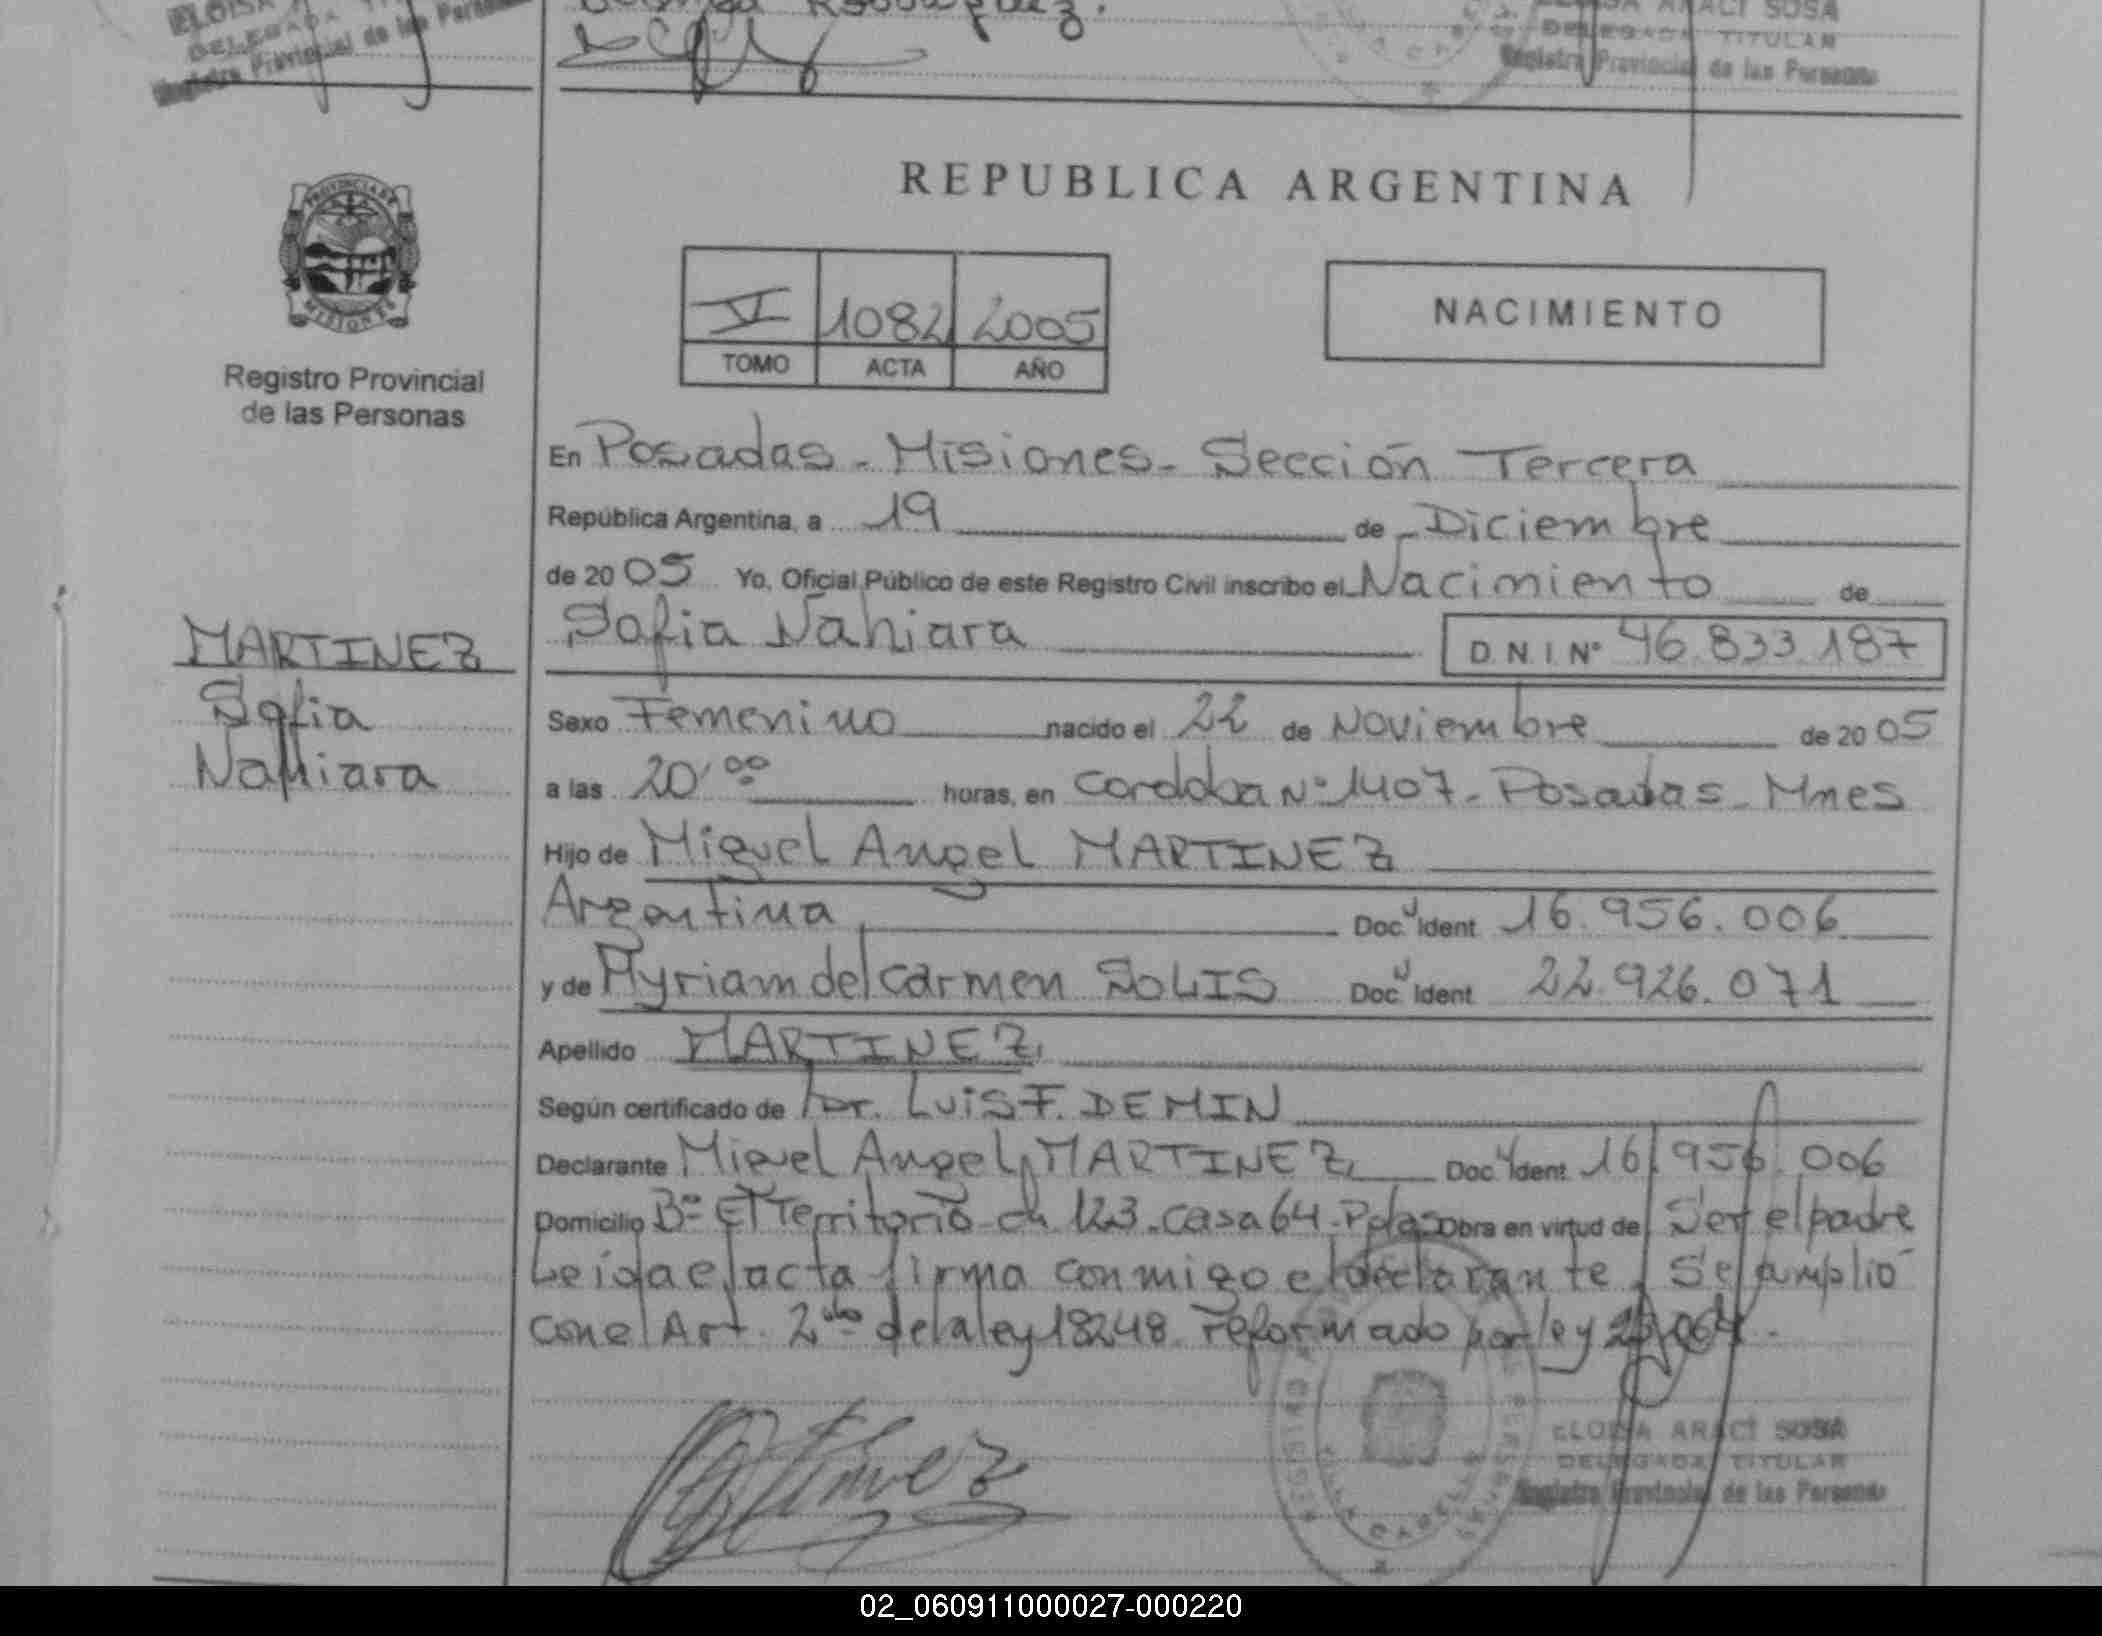 ELOISA
DELEGADA
Registro Provincial de las Personas
ARACI SOSA
DELEGADA TITULAR
Registro Provincial de las Personas
PROVINCIA DE
MISIONES
Registro Provincial
de las Personas
REPUBLICA ARGENTINA
VI 1082 2005
TOMO ACTA AÑO
NACIMIENTO
En Posadas - Misiones - Sección Tercera
República Argentina, a 19 de Diciembre
de 20 05 Yo, Oficial Público de este Registro Civil inscribo el Nacimiento de
Sofia Nahiara D.N.I Nº 46.833.187
MARTINEZ
Sofia
Nahiara
Sexo Femenino nacido el 22 de Noviembre de 20 05
a las 20'00 horas, en Cordoba Nº 1407 - Posadas - Mnes
Hijo de Miguel Angel MARTINEZ
Argentina Doc. Ident 16.956.006
y de Myriam del Carmen SOLIS Doc. Ident 22.926.071
Apellido MARTINEZ
Según certificado de Dr. Luis F. DEMIN
Declarante Miguel Angel MARTINEZ Doc. Ident. 16.956.006
Domicilio Bº El Territorio ch 123 - casa 64 - Pdas Obra en virtud de Ser el padre
Leida el acta firma conmigo el declarante. Se amplió
con el Art. 2do de la ley 18248 reformado por ley
ELOISA ARACI SOSA
DELEGADA TITULAR
Registro Provincial de las Personas
02_060911000027-000220